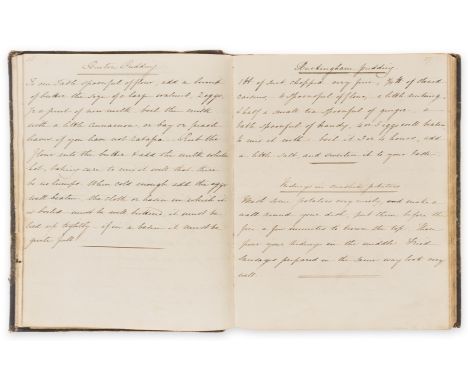 Pudding
To one table spoonful of flour, add a
of butter the size of a large walnut, 2 eggs
& a pint of new milk, boil the milk
with a little cinnamon or bay or peach
leaves if you have not ratafia. Rub the
flour into the butter & add the milk while
hot, taking care to mix it well that there
be no lumps. When cold enough add the eggs
well beaten. the cloth or basin in which it
is boiled must be well buttered, it must be
tied up tightly if in a basin it must be
quite full.
Buckingham pudding
of suet chopped very fine, of stoned
raisins, 2 spoonsful of flour, a little nutmeg,
half a small tea spoonful of ginger, a
table spoonful of brandy, six eggs well beaten
to mix it with, boil it hours, add
a little salt, and sweeten it to your taste.
Kidneys in mashed potatoes
Mash some potatoes very nicely, and make a
wall round your dish, put them before the
fire a few minutes to brown the top. Then
pour your kidneys in the middle. Fried
Sausages prepared in the same way look very
well.